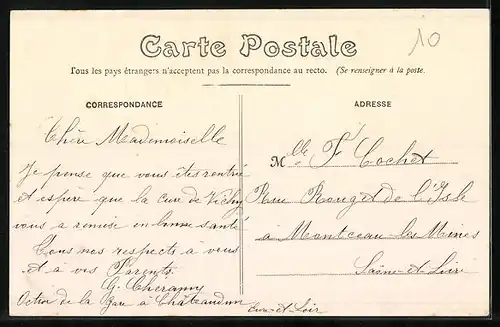 Carte Postale
10
Tous les pays étrangers n'acceptent pas la correspondance au recto. (Se renseigner à la poste.
CORRESPONDANCE
Chère Mademoiselle
Je pense que vous êtes rentrée
et espère que la cure de Vichy
vous a remise en bonne santé
Tous nos respects à vous
et à vos Parents.
G. Chéramy
de la Gare à Châteaudun
Eure-et-Loir
ADRESSE
Mlle F Cochet
Rue Rouget de l'Isle
à Montceau les Mines
Saône-et-Loire